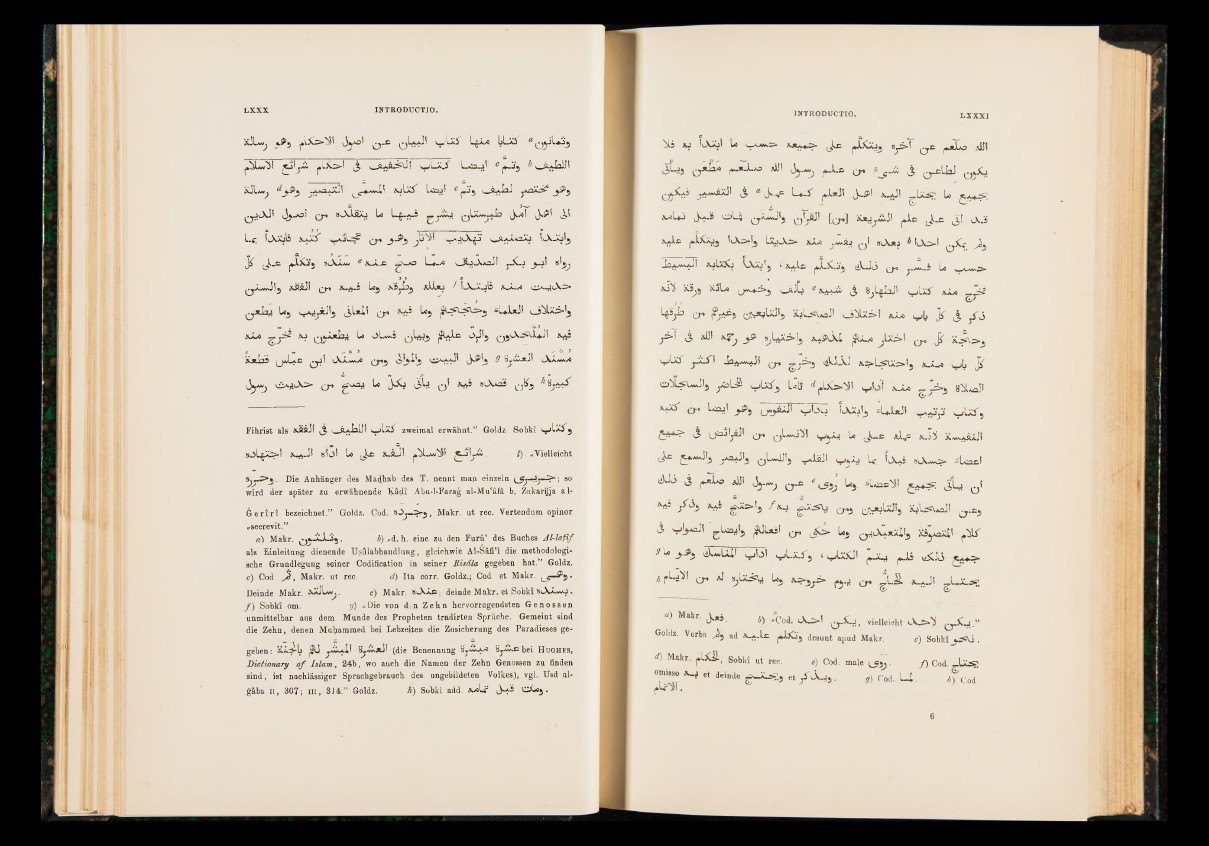 LXXX INTRODUCTIO.
وثمانون a كتابا منها كتاب البيان عن اصول الاحكام وهو رسالة
اللطيف b وتمّ c ايضا كتاب التخفيف في احكام شرائع الاسلام
وهو مختصر لطيف وتمّ c ايضا كتابه المسمى التبصير وهو d رسالة
الى اهل آمل طبرستان يشرح فيها ما يتقلّده من اصول الدين
وابتدأ بتصنيف تهذيب الآثار وهو من عجائب كتبه فابتدأ بما
رواه ابو بكر الصديق ممّا صحّ عنده e سنده وتكلّم على كلّ
حديث منه فابتدأ f بعلله وطرقه وما فيه من الفقه والسنن
واختلاف العلماء وحججهم وما فيه من المعاني والغريب وما يطعن
فيه الملحدون والردّ عليهم وبيان فساد ما يطعنون به فخرّج منه
مسند العشرة g واهل البيت والموالي ومن مسند ابن عباس قطعة
كبيرة h وكان قصده فيه ان يأتي بكلّ ما يصحّ من حديث رسول
Fihrist als كتاب اللطيف في الفقه zweimal erwähnt." Goldz. Sobkî وكتاب
شرائع الاسلام الفه على ما اذاه اليه اجتهاده. l) „Vielleicht
وجريره. Die Anhänger des Madhab des T. nennt man einzeln جريرى; so
wird der später zu erwähnende Ḳâḍî Abu-l-Farağ al-Muʿâfâ b. Zakarijja al-
Ğerîrî bezeichnet." Goldz. Cod. وجرده, Makr. ut rec. Vertendum opinor
„secrevit."
a) Makr. وثلثين. b) „d. h. eine zu den Furûʿ des Buches Al-laṭîf
als Einleitung dienende Uṣûlabhandlung, gleichwie Al-Šâfiʿî die methodologi-
sche Grundlegung seiner Codification in seiner Risâla gegeben hat." Goldz.
c) Cod. ثم, Makr. ut rec. d) Ita corr. Goldz.; Cod. et Makr. وهي.
Deinde Makr. رسالته. e) Makr. عنده; deinde Makr. et Sobkî بسنده.
f) Sobkî om. g) „Die von den Zehn hervorragendsten Genossen
unmittelbar aus dem Munde des Propheten tradirten Sprüche. Gemeint sind
die Zehn, denen Muḥammed bei Lebzeiten die Zusicherung des Paradieses ge-
geben: العشرة المبشر لهم بالجنة (die Benennung عشرة مبشرة bei Hughes,
Dictionary of Islam, 24b, wo auch die Namen der Zehn Genossen zu finden
sind, ist nachlässiger Sprachgebrauch des ungebildeten Volkes), vgl. Usd al-
ġâba II, 307; III, 314." Goldz. h) Sobkî add. ومات قبل تمامه.
INTRODUCTIO. LXXXI
الله صلعم عن آخره ويتكلّم على جميعه حسب ما ابتدأ به فلا
يكون لطاعن في شيء من علم رسول الله صلعم مطعن ويأتي
بجميع ما يحتاج اليه اهل العلم كما عمل a في التفسير فيكون
قد اتى على علم الشريعة [من] القرآن والسنن فمات قبل تمامه
ولم يمكن احدا b بعده ان يفسّر منه حديثا واحدا ويتكلّم عليه
حسب ما فسّر من ذلك وتكلّم عليه، وابتدأ بكتابه البسيط
فخرّج منه كتاب الطهارة في شبيه c بألف وخمس مائة ورقة لانّه
ذكر في كلّ باب منه اختلاف الصحابة والتابعين وغيرهم من طرقها
وحجّة كلّ من اختار منهم لمذهبه واختياره هو رحمه الله في آخر
كلّ باب منه واحتجاجه لذلك وخرّج من البسيط اكثر كتاب
الصلاة وخرّج منه آداب الاحكام d تامّا وكتاب المحاضر والسجلات
وكتاب ترتيب العلماء وابتدأ بآداب النفوس وهو ايضا من كتبه
النفيسة لانّه عمله على ما ينوب الانسان من الفرائض في جميع
اعضاء جسده فبدأ بما ينوب القلب واللسان والبصر والسمع على
ان يأتي بجميع الاعضاء وما روى e عن رسول الله صلعم في ذلك
وعن الصحابة والتابعين ومن يحتجّ به f واحتجّ فيه وذكر فيه
كلام المتصوّفة والمتعبّدين وما حكى من افعالهم وايضاح الصواب في
جميع ذلك فلم يتمّ الكتاب، وكتاب آداب المناسك وهو ما g
يحتاج اليه الحاجّ من يوم خروجه وما يختاره له من الايام h
a) Makr. فعل. b) „Cod. يكن احدا, vielleicht يكن لاحد."
Goldz. Verba ولم ad وتكلم عليه desunt apud Makr. c) Sobkî نحو.
d) Makr. الحكام, Sobkî ut rec. e) Cod. male روى. f) Cod. يحتاج
omisso به et deinde ويحتج et ويذكر. g) Cod. لما. h) Cod.
الاتمام.
6